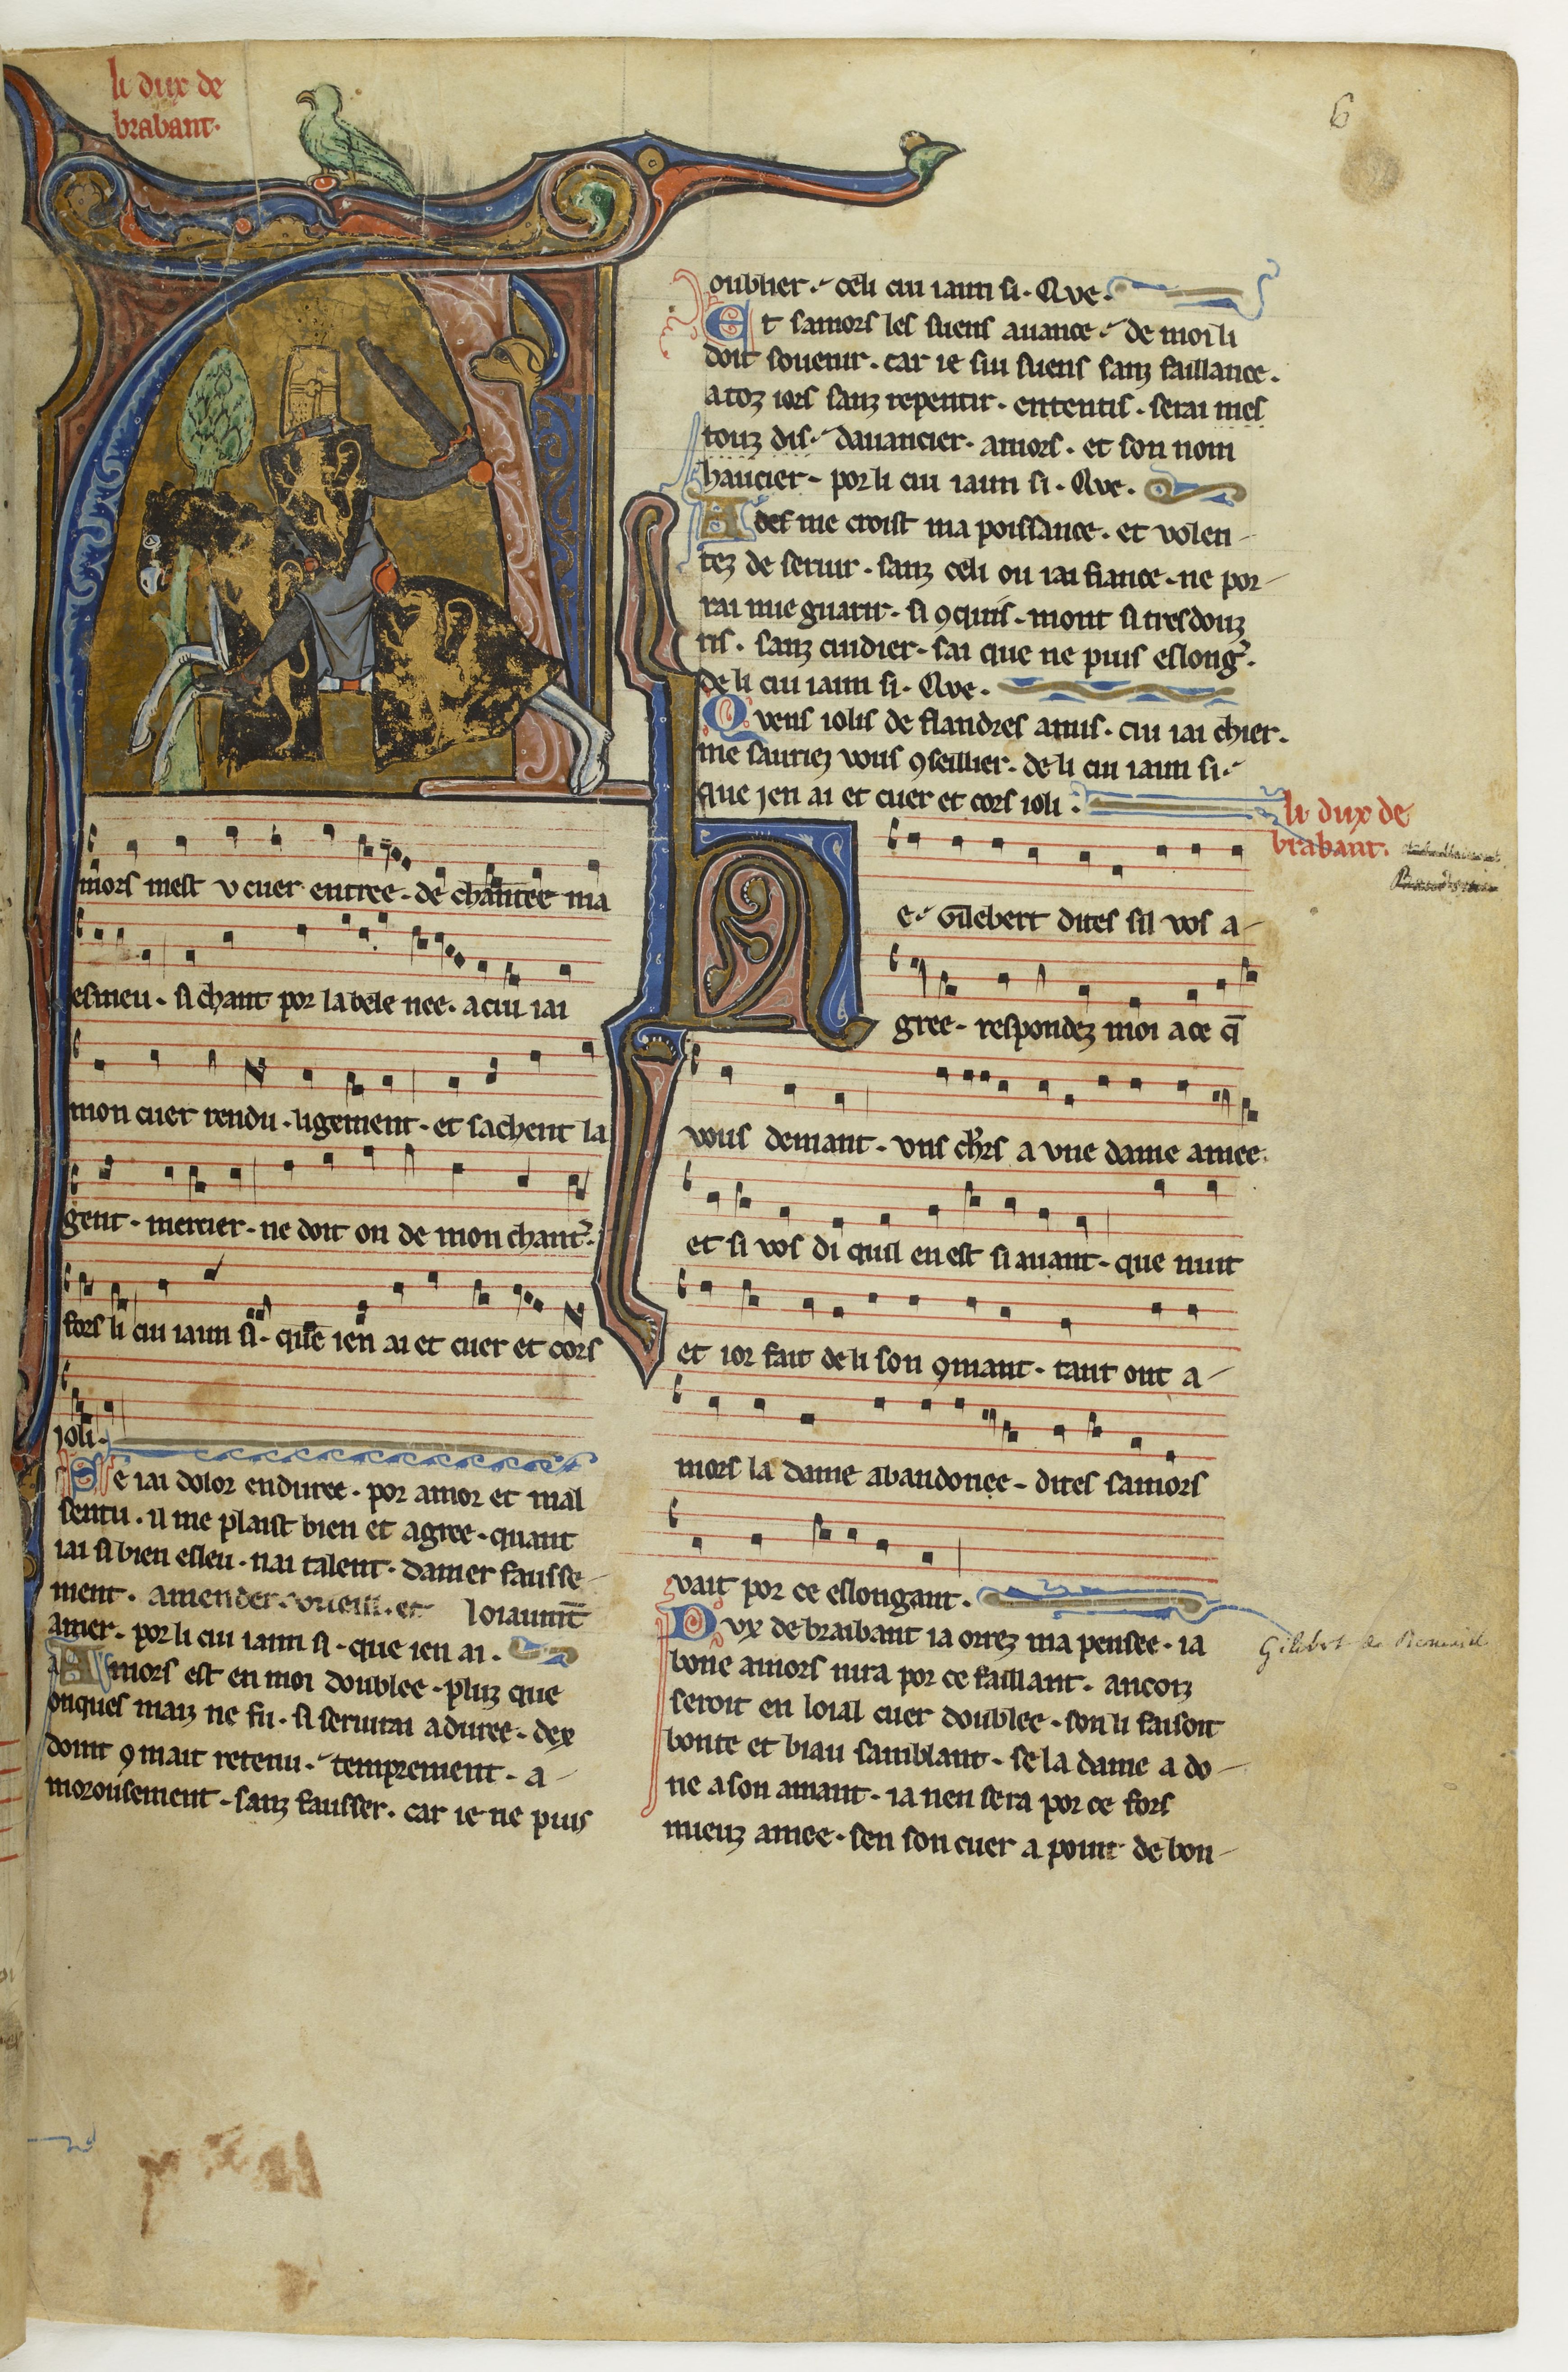 li dux de
brabant.
6
Amors mest v cuer entree. de chanter ma
esmeu. si chant por la bele nee. a cui iai
mon cuer rendu. ligement. et sachent la
gent. mercier. ne doit on de mon chant᷑.
fors li cui iaim si. que ien ai et cuer et cors
ioli.
Se iai dolor enduree. por amor et mal
sentu. il me plaist bien et agree. quant
iai si bien esleu. nai talent. damer fausse
ment. amender. vueill. et loiaumt̄
amer. por li cui iaim si. que ien ai.
Amors est en moi doublee. pluz que
onques maiz ne fu. si seruirai a duree. dex
doint ꝯmait retenu. temprement. a
morousement. sanz fausser. car ie ne puis
oublier. celi cui iaim si. Que.
Et samors les suens auance. de moi li
doit souenir. car ie sui suens sanz faillance.
a toz iors sanz repentir. ententis. serai mes
touz dis. dauancier. amors. et son nom
haucier. por li cui iaim si. Que.
Ades me croist ma poissance. et volen
tez de seruir. sanz celi ou iai fiance. ne por
rai mie guarir. si ꝯquis. mont si tres douz
ris. sanz cuidier. sai que ne puis eslong᷑.
de li cui iaim si. Que.
Quens iolis de flandres amis. cui iai chier.
me sauriez vous ꝯseillier. de li cui iaim si.
que ien ai et cuer et cors ioli.
li dux de
brabant.
Biau Gillebert dites sil vos a
gree. respondez moi a ce q̄
vous demant. vns chr̄s a vne dame amee.
et si vos di quil en est si auant. que nuit
et ior fait de li son ꝯmant. tant ont a
mors la dame abandonee. dites samors
vait por ce eslongant.
Gilebert de Berneville
Dvx de braibant ia orrez ma pensee. ia
bone amors nira por ce faillant. ancoiz
seroit en loial cuer doublee. son li faisoit
bonte et biau samblant. se la dame a do
ne a son amant. ia nen sera por ce fors
mieuz amee. sen son cuer a point de bon